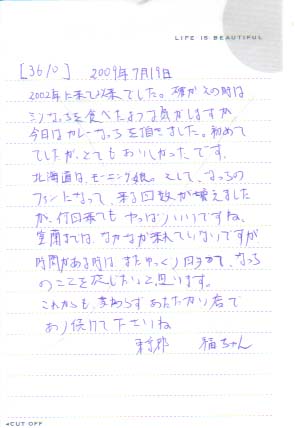 LIFE IS BEAUTIFUL
[3610] 2009年7月19日
2002年に来て以来でした。確かその時は
ミソなっとを食べたような気がしますが
今日はカレーなっとを頂きました。初めて
でしたが、とてもおいしかったです。
北海道は、モーニング娘。そして、なっちの
ファンになって、来る回数が増えました
が、何回来てもやっぱりいいですね。
室蘭までは、なかなか来れていないですが
時間がある時は、またゆっくり回って、なっち
のことを感じたいと思います。
これからも、変わらずあたたかい店で
あり続けて下さいね
東京都 福ちゃん
◂CUT OFF